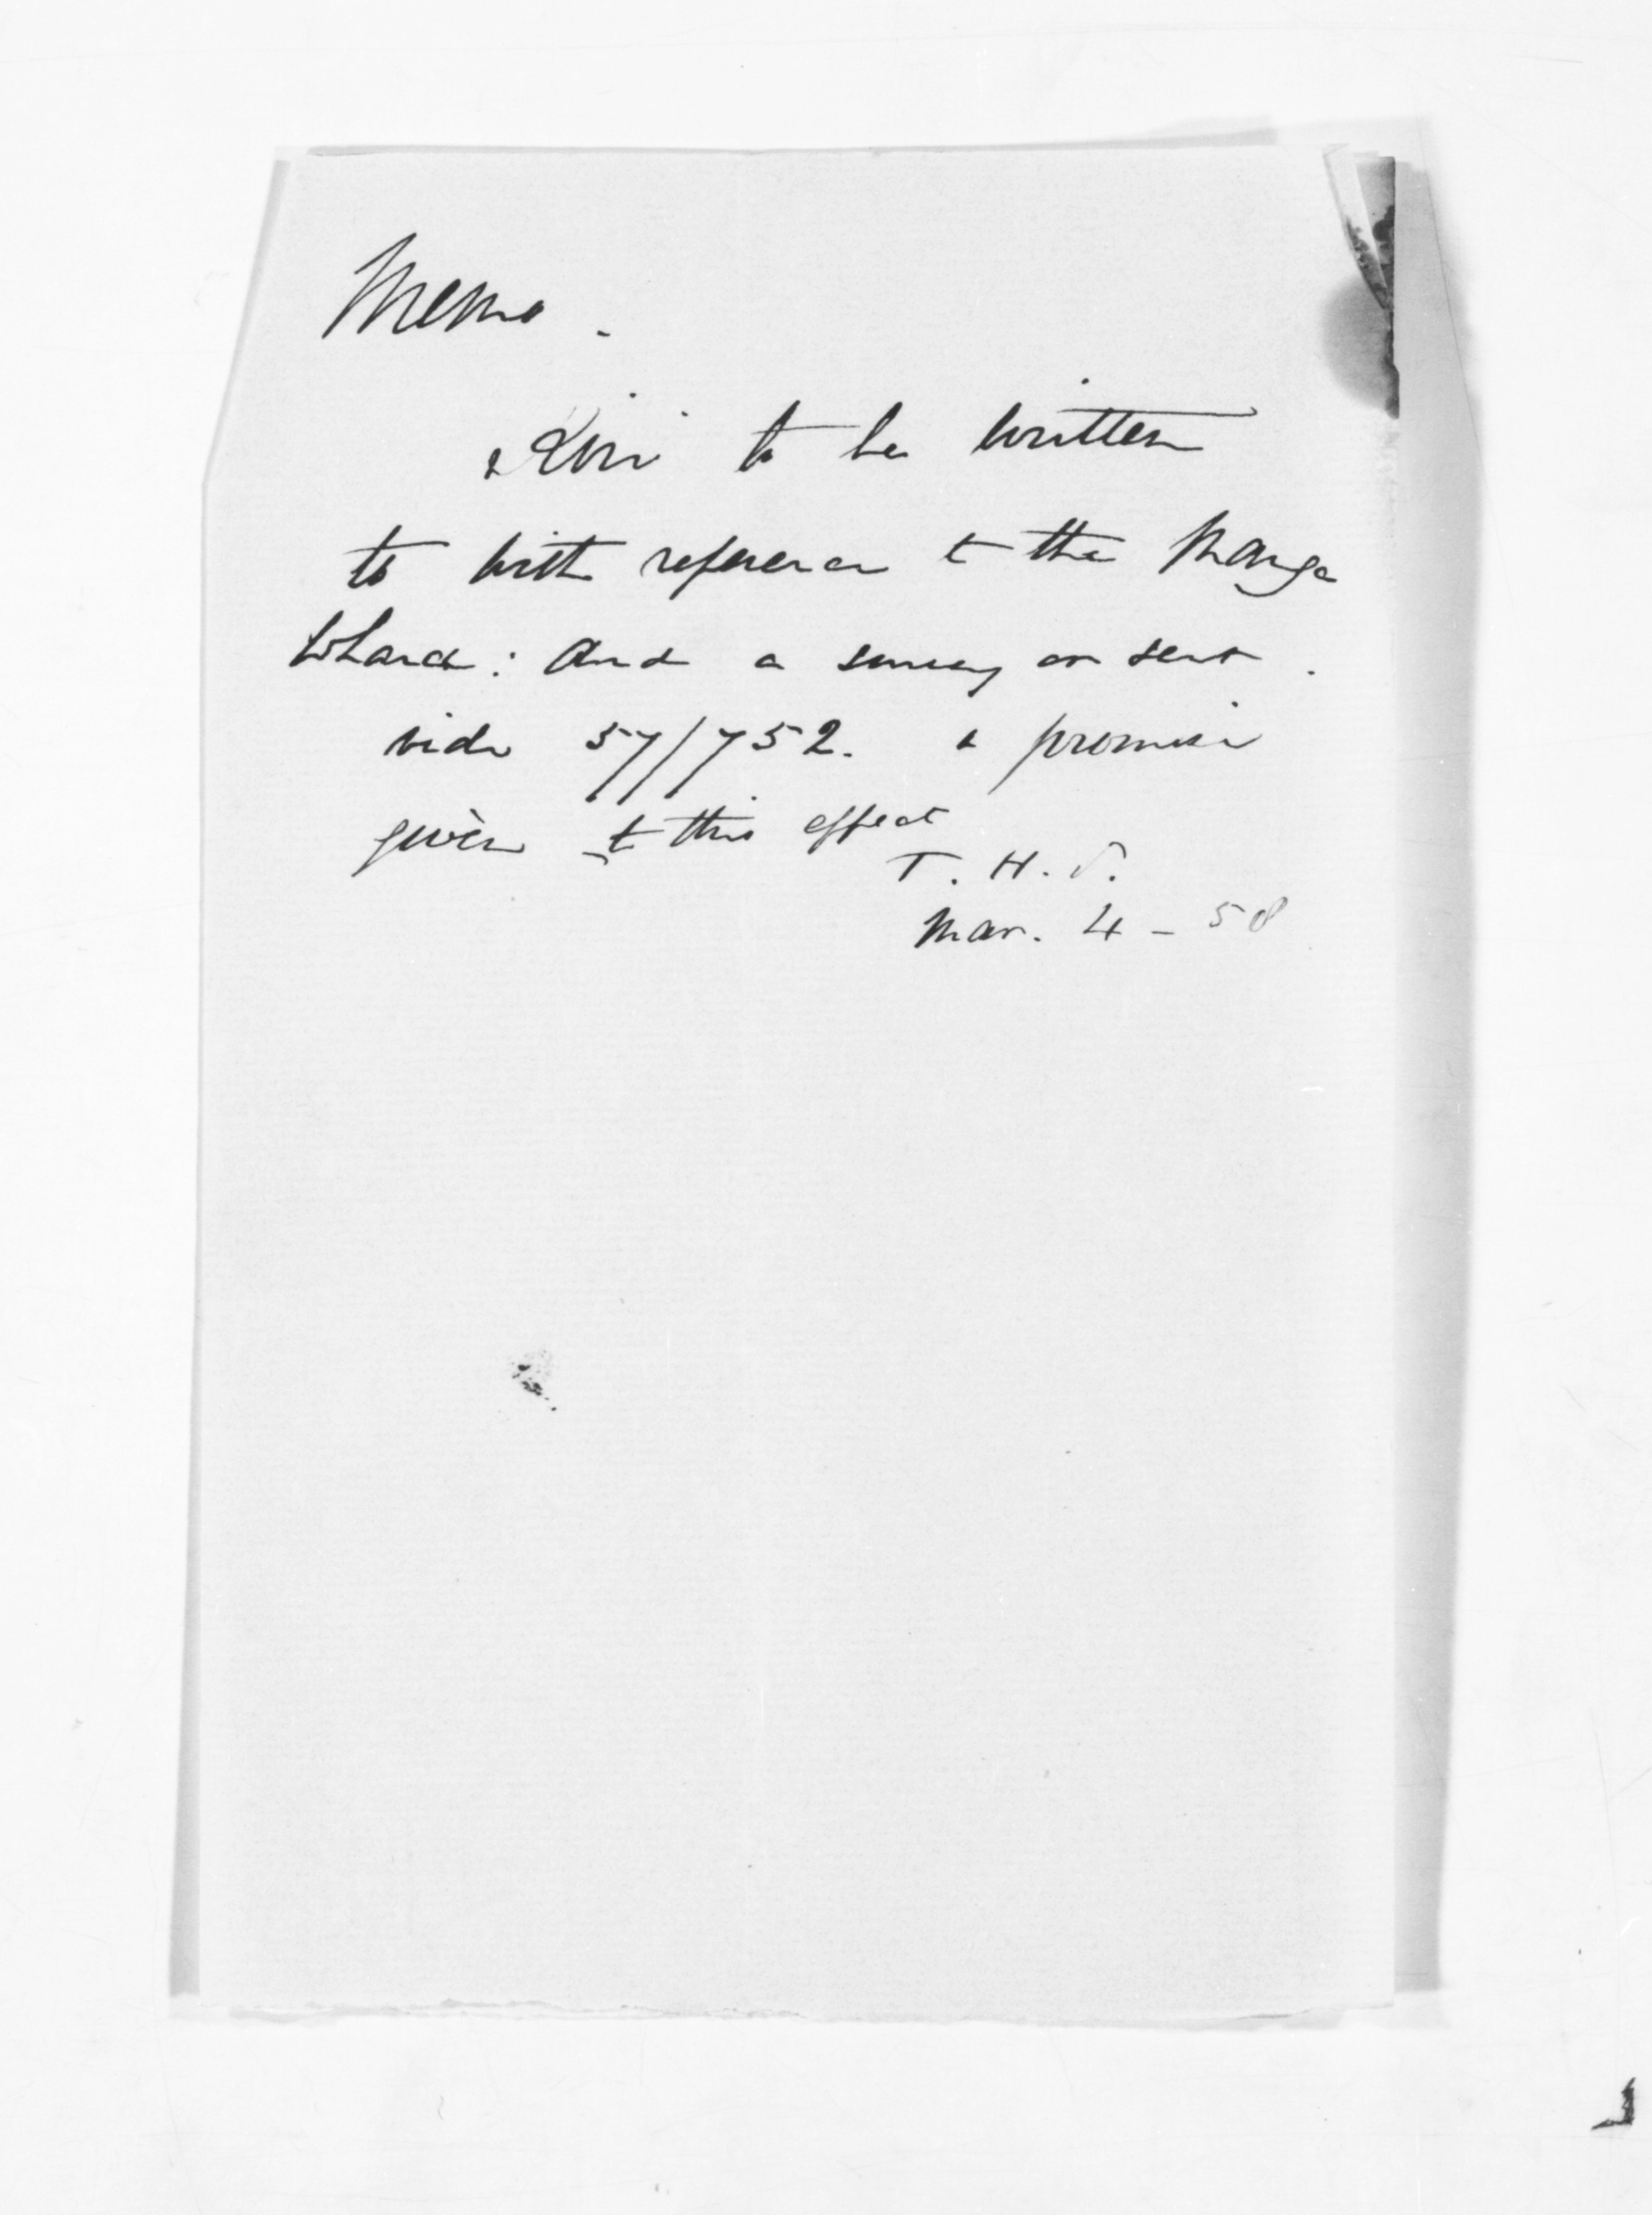 Memo.
Kivi to be written
to with reference to the Manga
Whare: And a survey or sent.
vide 57/752. a promise
given to this effect
T. H. S.
Mar. 4 - 58